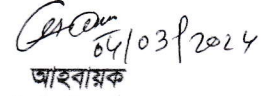 04/03/2024
আহবায়ক